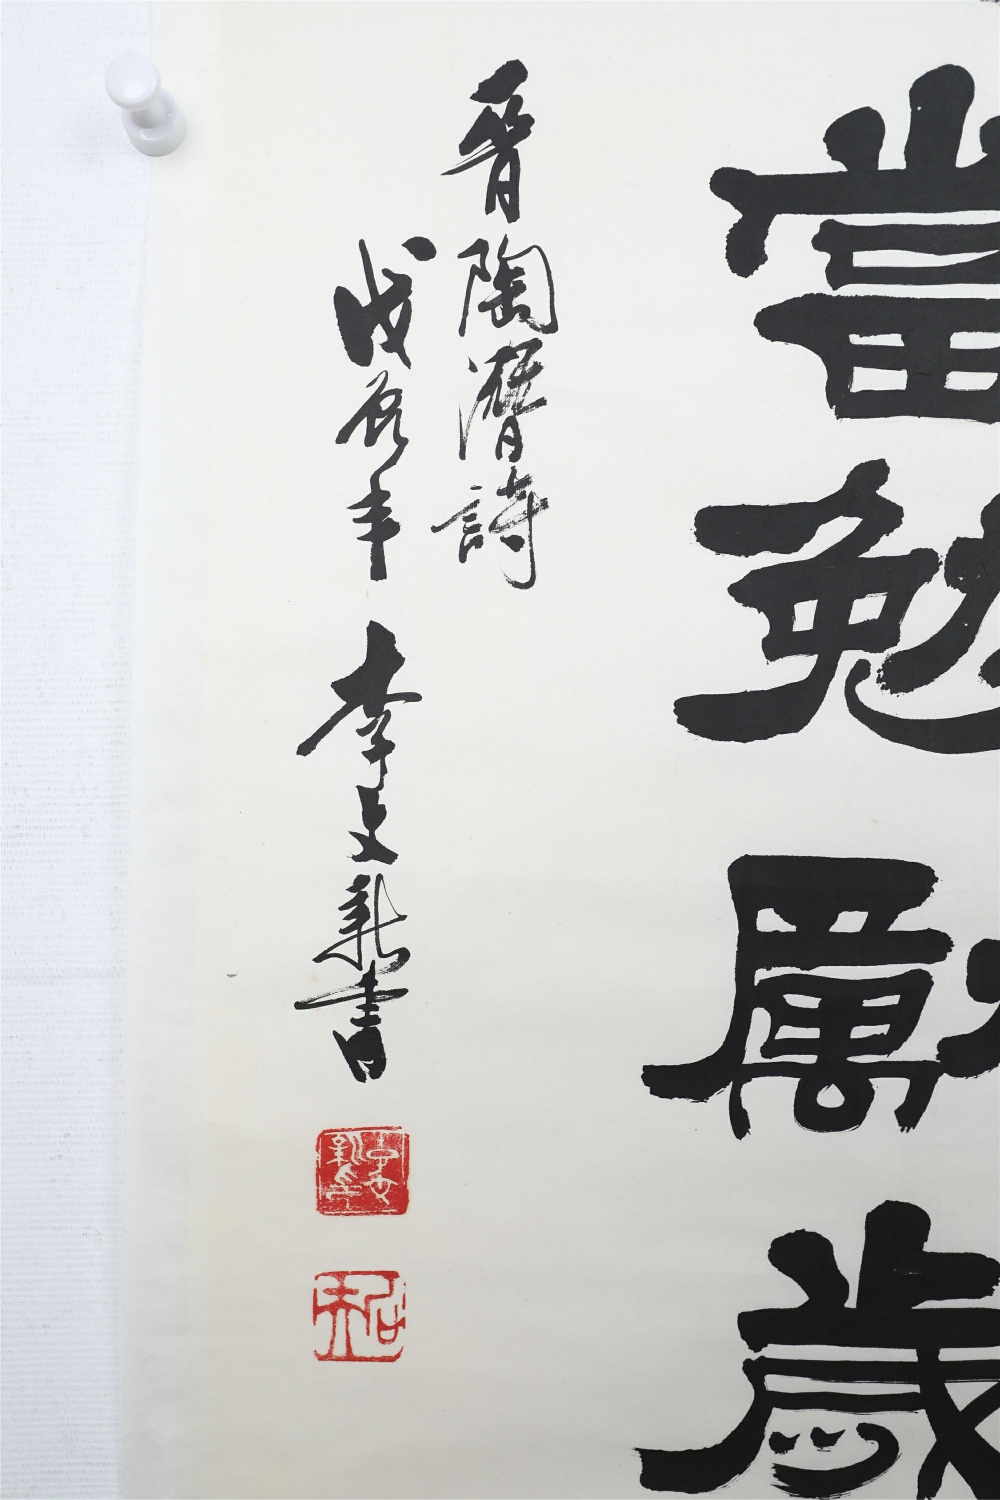 當勉勵歲
晋陶潛詩
戊辰年 李文新書